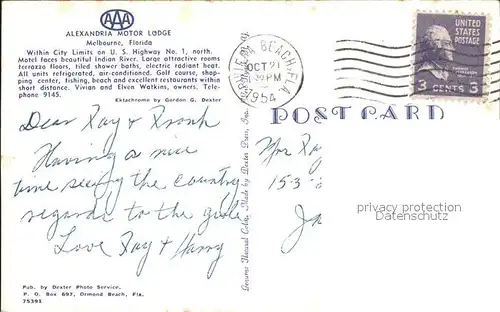 AAA
ALEXANDRIA MOTOR LODGE
Melbourne, Florida
Within City Limits on U. S. Highway No. 1, north.
Motel faces beautiful Indian River. Large attractive rooms
terrazzo floors, tiled shower baths, electric radiant heat.
All units refrigerated, air-conditioned. Golf course, shop-
ping center, fishing, beach and excellent restaurants within
short distance. Vivian and Elven Watkins, owners. Tele-
phone 9145.
Ektachrome by Gordon G. Dexter
Dear Kay & Frank
Having a nice
time seeing the country
regards to the girls
Love Kay & Harry
Pub. by Dexter Photo Service,
P. O. Box 697, Ormond Beach, Fla.
75391
Genuine Natural Color, Made by Dexter Press, Inc.
BEACH, FLA.
OCT 21
PM
1954
UNITED
STATES
POSTAGE
3 CENTS 3
POST CARD
153
privacy protection
Datenschutz